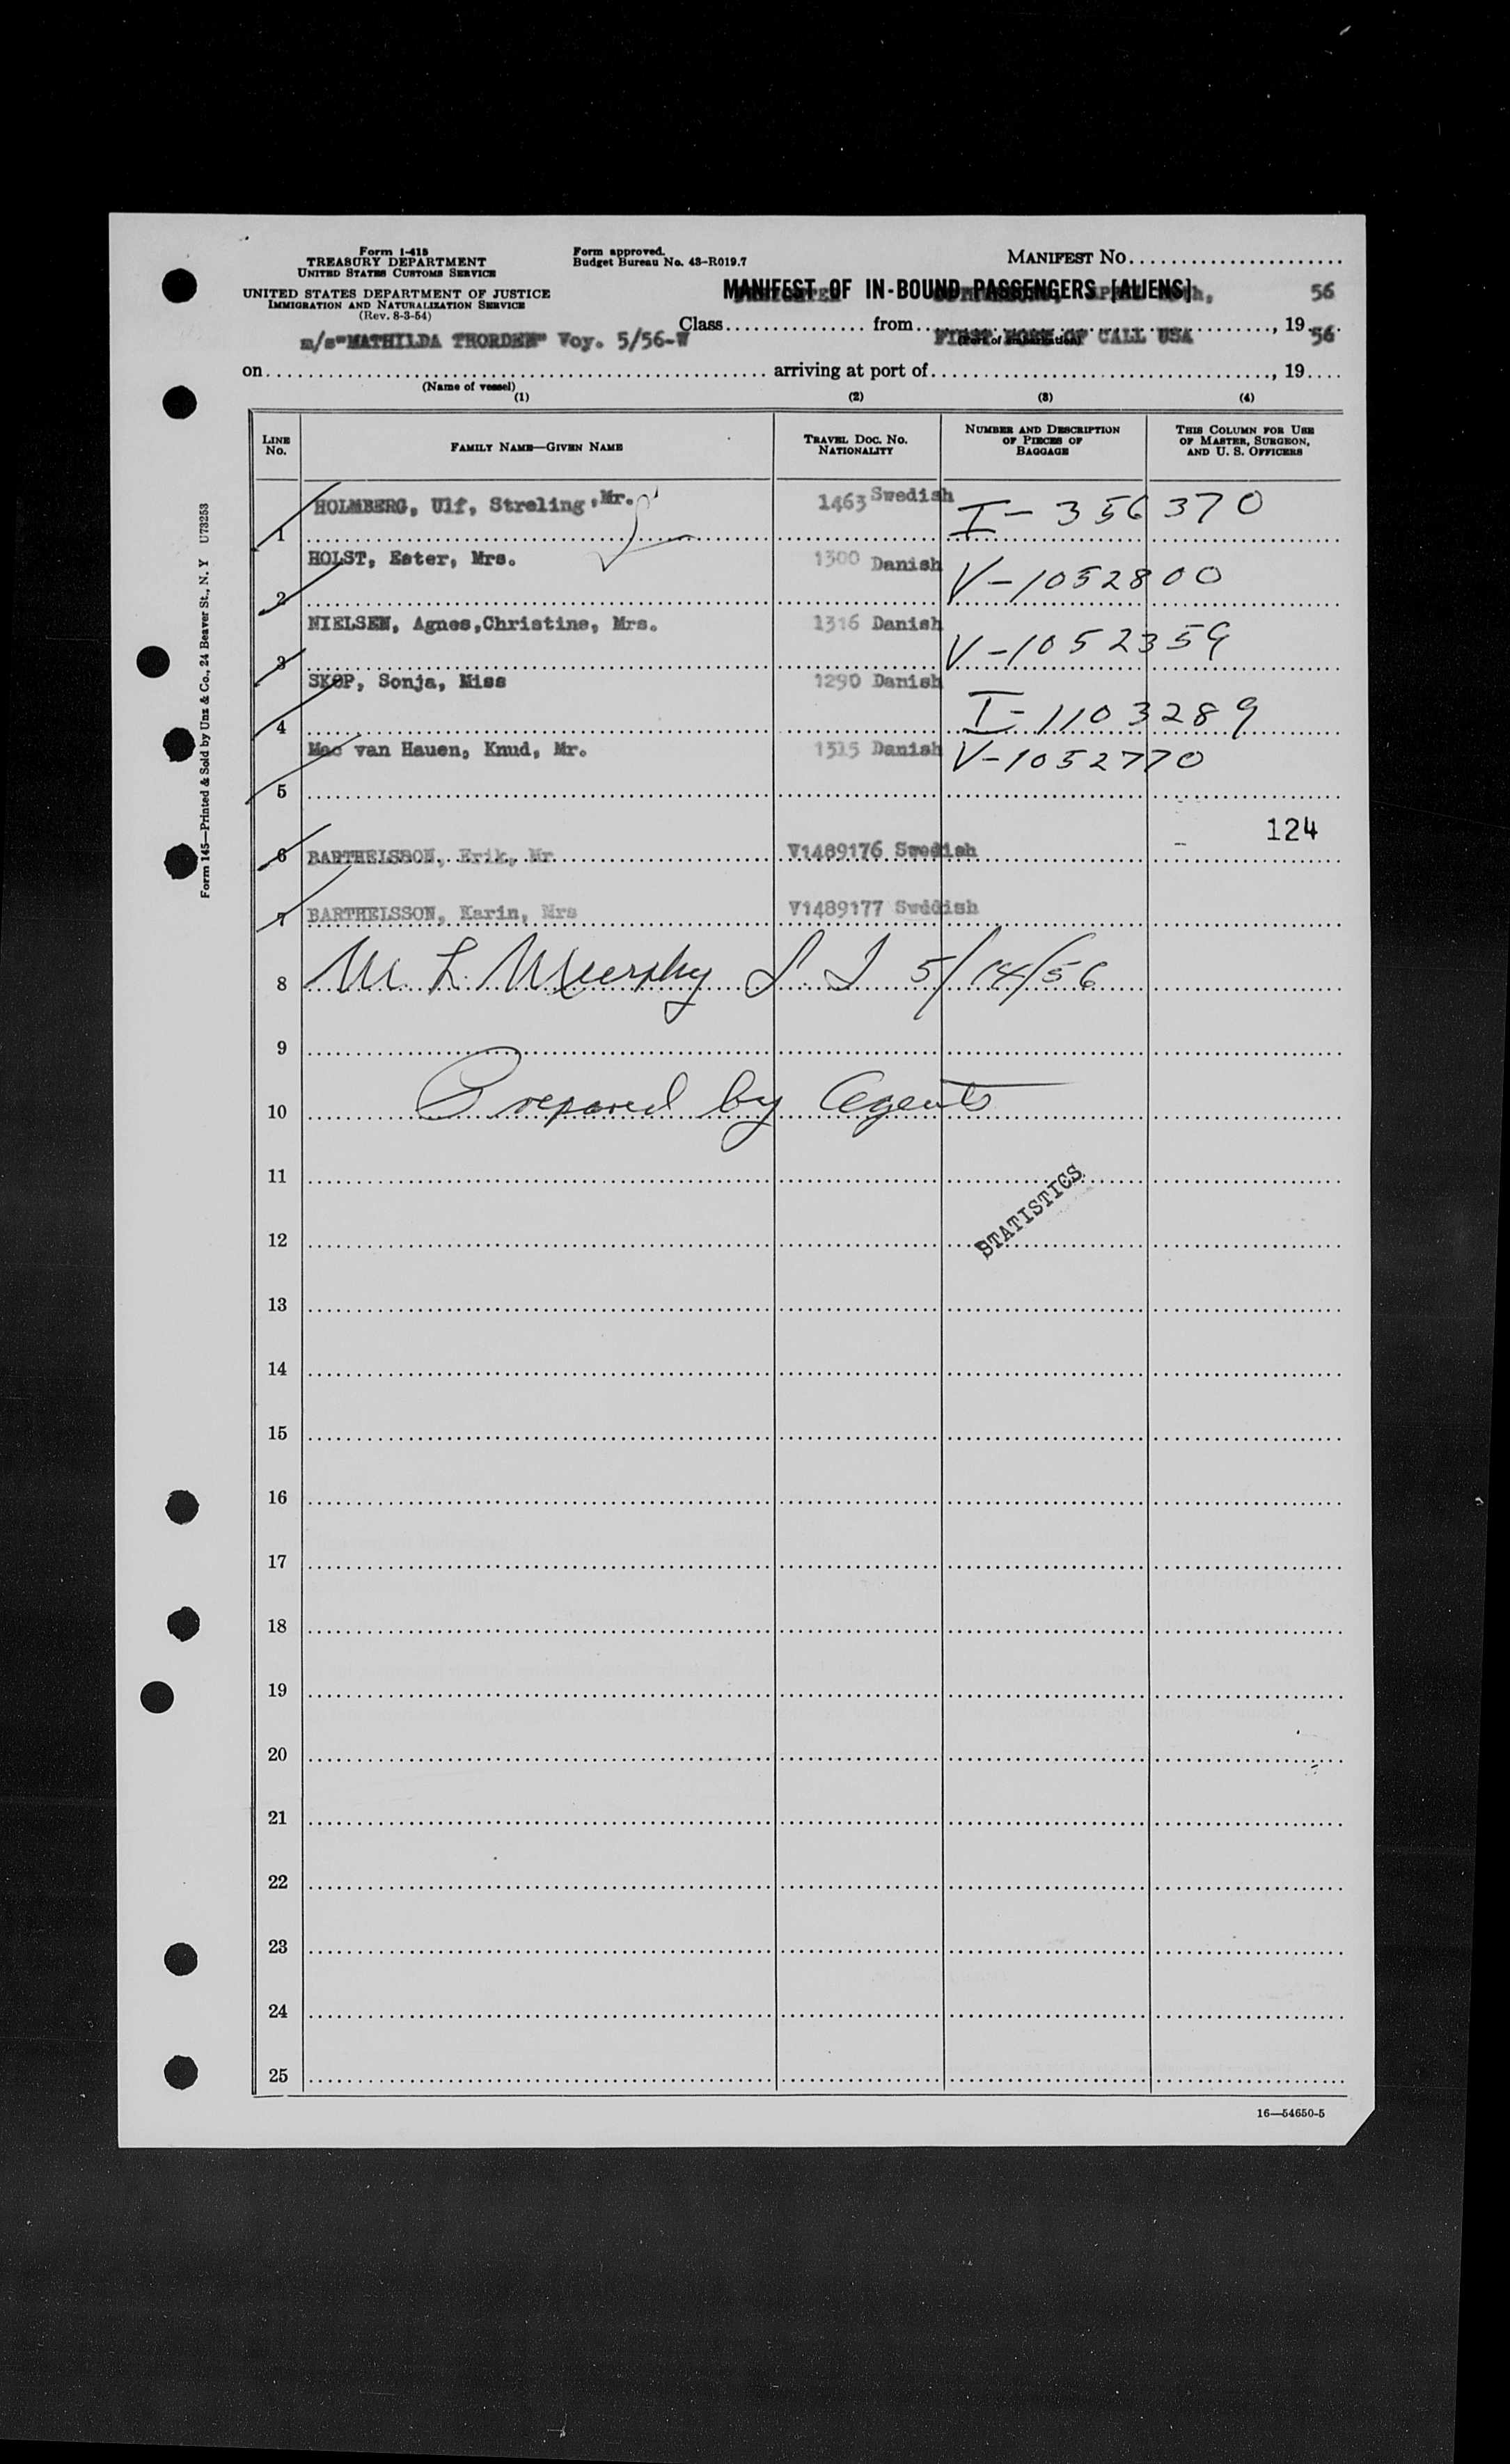 Form I-415
TREASURY DEPARTMENT
UNITED STATES CUSTOMS SERVICE
UNITED STATES DEPARTMENT OF JUSTICE
IMMIGRATION AND NATURALIZATION SERVICE
(Rev. 8-3-54)
Form approved.
Budget Bureau No. 43-R019.7
MANIFEST NO.
MANIFEST OF IN-BOUND PASSENGERS (ALIENS)
56
Class from , 19 56
FIRST PORT OF CALL USA
(Port of embarkation)
m/s"MATHILDA THORDEN" Voy. 5/56-W
on arriving at port of , 19
(Name of vessel)
(1) (2) (3) (4)
LINE NO. FAMILY NAME—GIVEN NAME TRAVEL DOC. NO. NATIONALITY NUMBER AND DESCRIPTION OF PIECES OF BAGGAGE THIS COLUMN FOR USE OF MASTER, SURGEON, AND U. S. OFFICERS
1 HOLMBERG, Ulf, Streling,Mr. 1463 Swedish I-356370
2 HOLST, Ester, Mrs. 1300 Danish V-1052800
3 NIELSEN, Agnes,Christine, Mrs. 1316 Danish V-1052359
4 SKOP, Sonja, Miss 1290 Danish I-1103289
5 Mac van Hauen, Knud, Mr. 1315 Danish V-1052770
124
6 BARTHELSSON, Erik, Mr V1489176 Swedish
7 BARTHELSSON, Karin, Mrs V1489177 Sweddish
8 M. L. Murphy I. I 5/14/56
9
10 Prepared by Agents
11
STATISTICS
12
13
14
15
16
17
18
19
20
21
22
23
24
25
16—54650-5
Form 145—Printed & Sold by Unz & Co., 24 Beaver St., N. Y U73253